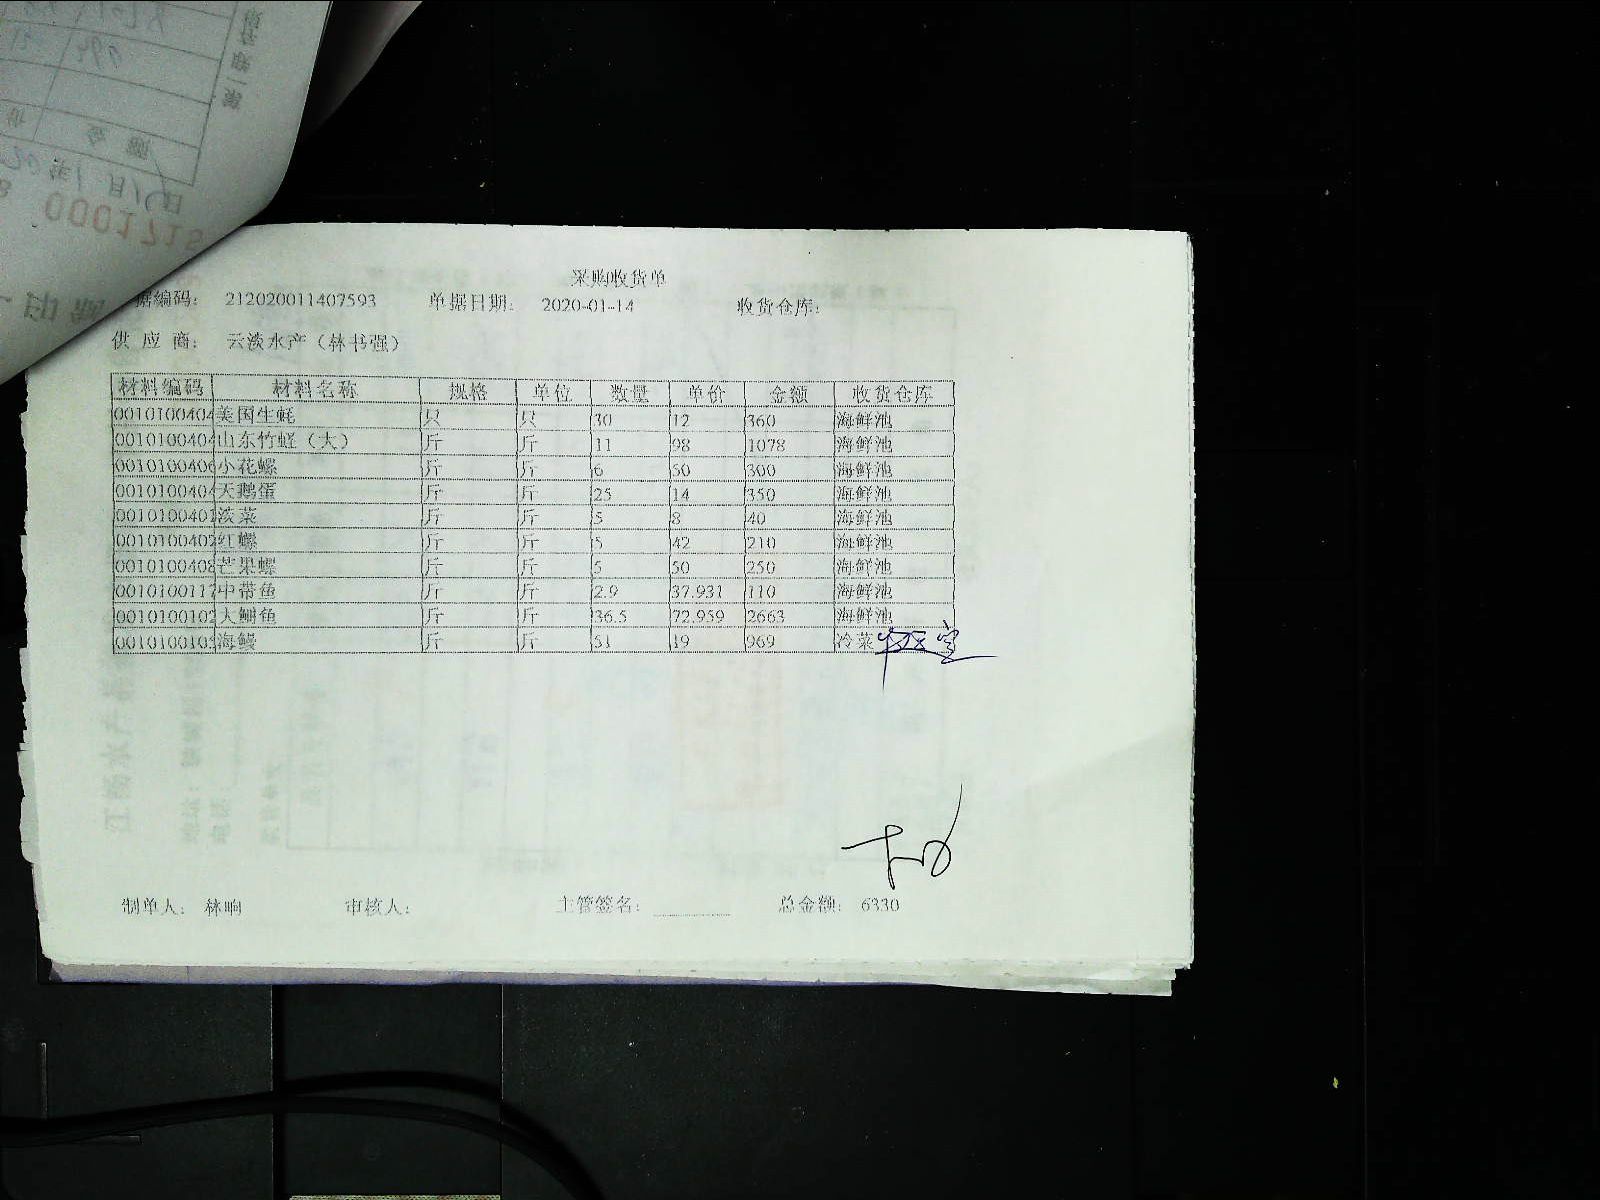 采购收货单
据编码: 212020011407593 单据日期: 2020-01-14 收货仓库:
供应商: 云淡水产（林书强）
材料编码 材料名称 规格 单位 数量 单价 金额 收货仓库
0010100404 美国生蚝 只 只 30 12 360 海鲜池
0010100404 山东竹蛏（大） 斤 斤 11 98 1078 海鲜池
0010100406 小花螺 斤 斤 6 50 300 海鲜池
0010100404 天鹅蛋 斤 斤 25 14 350 海鲜池
0010100401 淡菜 斤 斤 5 8 40 海鲜池
0010100402 红螺 斤 斤 5 42 210 海鲜池
0010100408 芒果螺 斤 斤 5 50 250 海鲜池
0010100117 中带鱼 斤 斤 2.9 37.931 110 海鲜池
0010100102 大鲳鱼 斤 斤 36.5 72.959 2663 海鲜池
001010010 海鳗 斤 斤 51 19 969 冷菜
制单人: 林响 审核人: 主管签名: 总金额: 6330
0001715